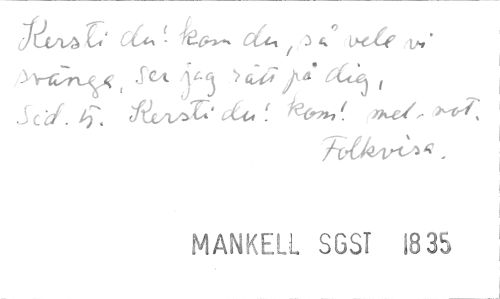 Kersti du! kom du, så vele vi
svänga, ser jag rätt på dig,
Sid. 5. Kersti du! kom! mel. not.
Folkvisa.
MANKELL SGST 1835